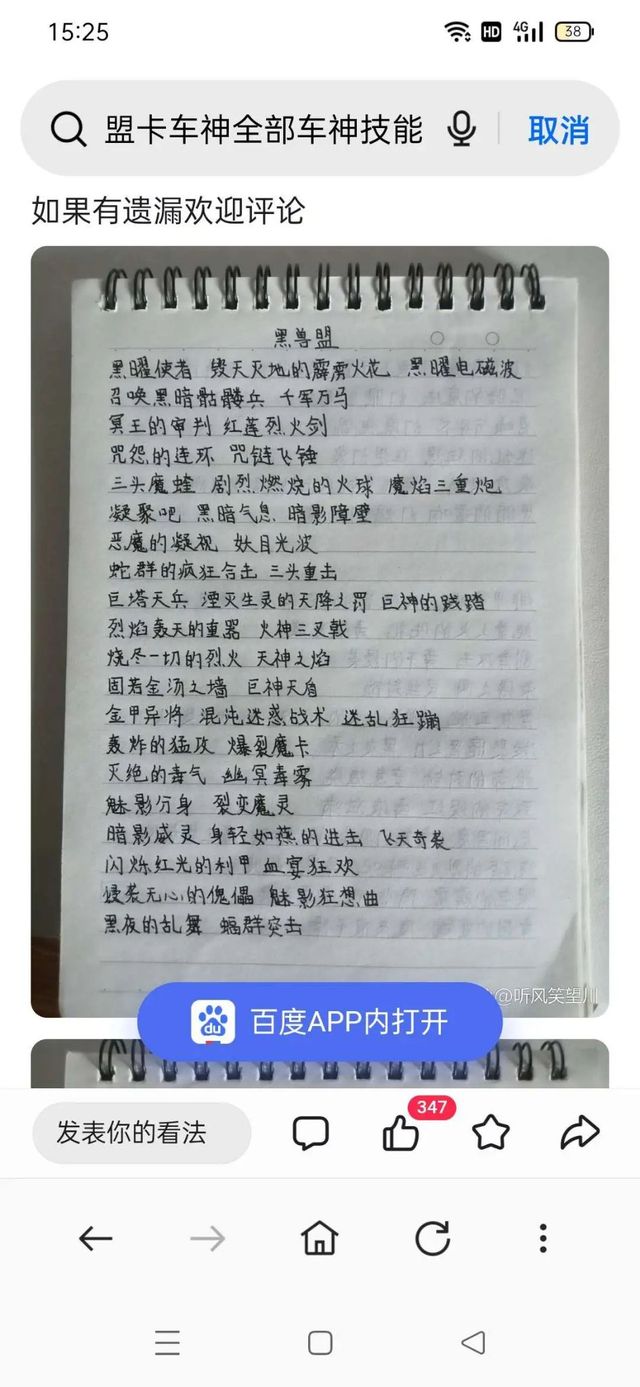 15:25
HD 4G 38
盟卡车神全部车神技能 取消
如果有遗漏欢迎评论
黑兽盟
黑曜使者 毁天灭地的霹雳火花 黑曜电磁波
召唤黑暗骷髅兵 千军万马
冥王的审判 红莲烈火剑
咒怨的连环 咒链飞锤
三头魔蝰 剧烈燃烧的火球 魔焰三重炮
凝聚吧 黑暗气息 暗影障壁
恶魔的凝视 妖目光波
蛇群的疯狂合击 三头重击
巨塔天兵 湮灭生灵的天降之罚 巨神的践踏
烈焰轰天的重器 火神三叉戟
烧尽一切的烈火 天神之焰
固若金汤之墙 巨神天盾
金甲异将 混沌迷惑战术 迷乱狂蹦
轰炸的猛攻 爆裂魔卡
灭绝的毒气 幽冥毒雾
魅影分身 裂变魔灵
暗影威灵 身轻如燕的进击 飞天奇袭
闪烁红光的利甲 血宴狂欢
侵袭无心的傀儡 魅影狂想曲
黑夜的乱舞 蝠群突击
@听风笑望川
du 百度APP内打开
发表你的看法 347